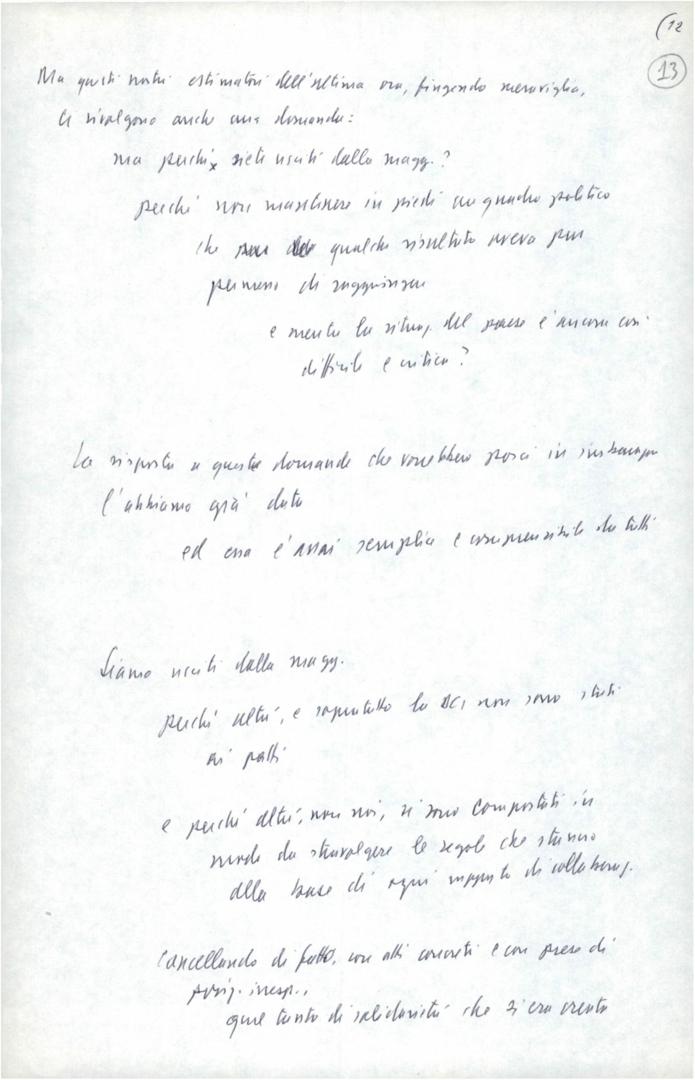 (12
13
Ma questi nostri estimatori dell'ultima ora, fingendo meraviglia,
ci rivolgono anche una domanda:
ma perché siete usciti dalla magg.?
perché non mantenere in piedi un quadro politico
che qualche risultato aveva pur
permesso di raggiungere
e mentre la situaz. del paese è ancora così
difficile e critica?
La risposta a queste domande che vorrebbero porci in imbarazzo
l'abbiamo già data
ed essa è assai semplice e comprensibile da tutti
Siamo usciti dalla magg.
perché altri, e soprattutto la DC, non sono stati
ai patti
e perché altri, non noi, si sono comportati in
modo da stravolgere le regole che stanno
alla base di ogni rapporto di collaboraz.
Cancellando di fatto, con atti concreti e con prese di
posiz. inesp.,
quel tanto di solidarietà che si era creato